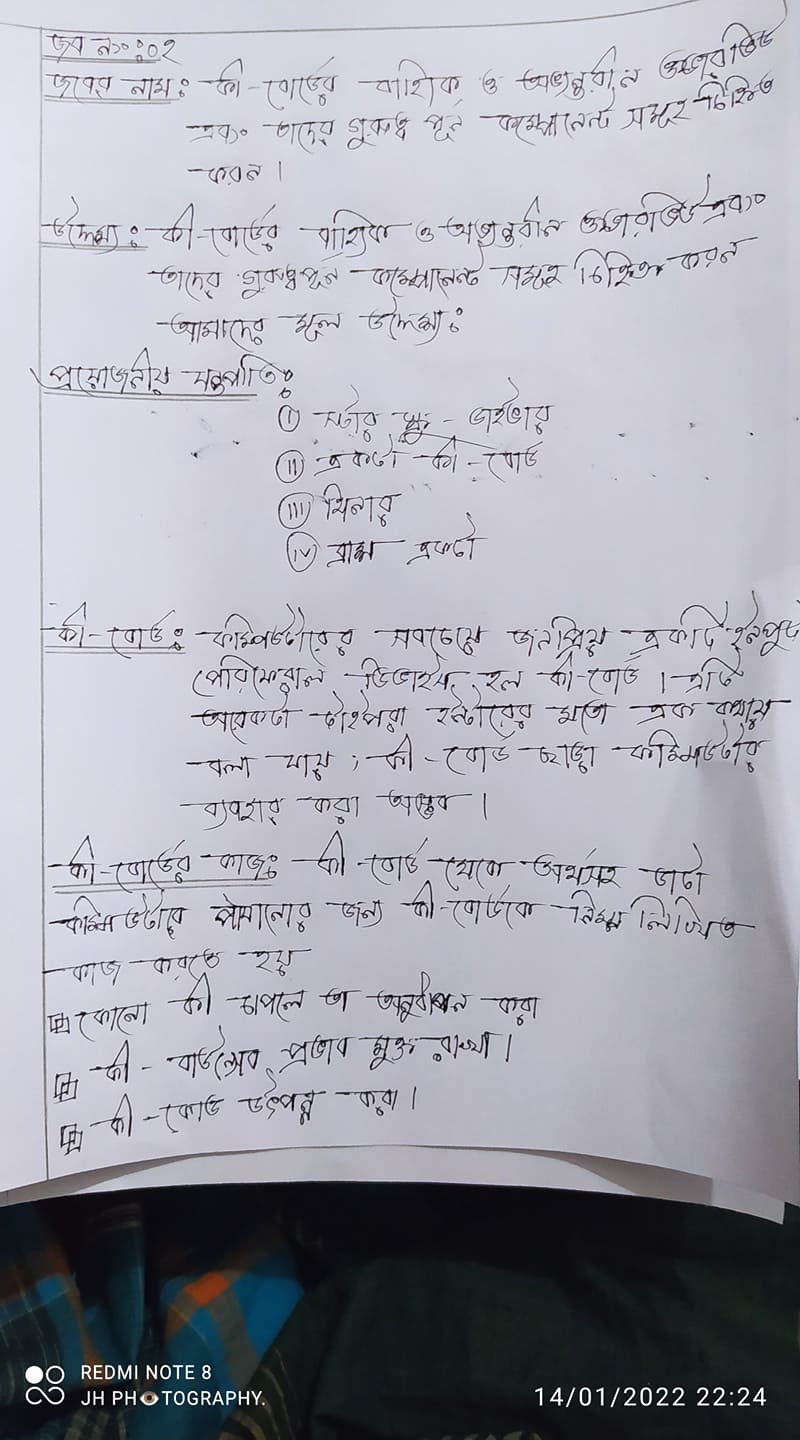 জব নং:০২
জবের নাম: কী-বোর্ডের বাহ্যিক ও অভ্যন্তরীন
এবং তাদের গুরুত্ব পূর্ন কম্পোনেন্ট সমূহ চিহ্নিত
করন।
উদ্দেশ্য: কী-বোর্ডের বাহ্যিক ও অভ্যন্তরীন এবং
তাদের গুরুত্বপূর্ন কম্পোনেন্ট সমূহ চিহ্নিত করন
আমাদের মূল উদ্দেশ্য:
প্রয়োজনীয় যন্ত্রপাতি:
(i) স্টার স্ক্রু-ডাইভার
(ii) একটা কী-বোর্ড
(iii) থিনার
(iv) ব্রাশ একটা
কী-বোর্ড: কম্পিউটারের সবচেয়ে জনপ্রিয় একটি ইনপুট
পেরিফেরাল ডিভাইস হল কী-বোর্ড। এটি
অনেকটা টাইপরা ইটারের মতো এক কথায়
বলা যায়, কী-বোর্ড ছাড়া কম্পিউটার
ব্যবহার করা অসম্ভব।
কী-বোর্ডের কাজ: কী-বোর্ড থেকে অর্থসহ ডাটা
কম্পিউটারে পাঠানোর জন্য কী-বোর্ডকে নিম্ন লিখিত
কাজ করতে হয়
কোনো কী চাপলে তা অনুধাবন করা
কী-বাউন্সের প্রভাব মুক্ত রাখা।
কী-কোড উৎপন্ন করা।
REDMI NOTE 8
JH PHOTOGRAPHY.
14/01/2022 22:24